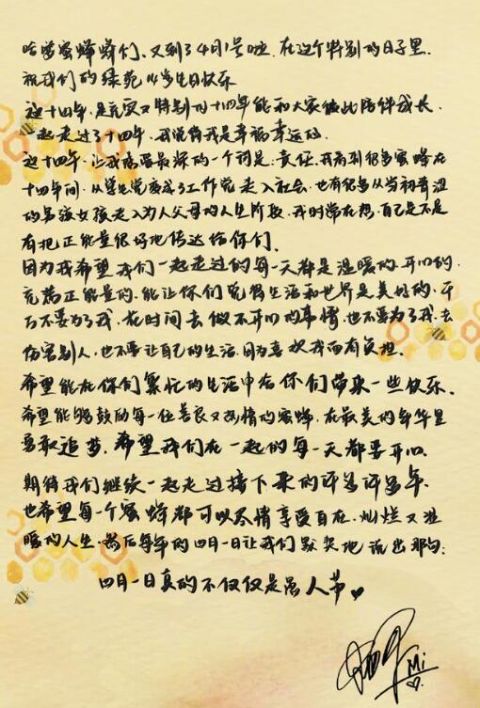 哈啰蜜蜂蜂们、又到了4月1号啦、在这个特别的日子里
祝我们的绿苑小学生日快乐
这十四年、是充实又特别的十四年能和大家彼此陪伴成长、
一起走过了十四年、我觉得我是幸福幸运的、
这十四年、让我感受最深的一个词是：责任、我看到很多蜜蜂在
十四年间、从学生党变成了工作党走入社会、也有很多从当初青涩
的男孩女孩走入为人父母的人生阶段、我时常在想、自己是不是
有把正能量很好地传达给你们、
因为我希望我们一起走过的每一天都是温暖的、开心的、
充满正能量的、能让你们觉得生活和世界是美好的、千
万不要为了我、花时间去做不开心的事情、也不要为了我、去
伤害别人、也不要让自己的生活、因为喜欢我而有负担、
希望能在你们繁忙的生活中给你们带来一些快乐、
希望能够鼓励每一位善良又热情的蜜蜂、在最美的年华里
勇敢追梦、希望我们在一起的每一天都要开心、
期待我们继续一起走过接下来的许多许多年、
也希望每一个蜜蜂都可以尽情享受自在、灿烂又温
暖的人生、然后每年的四月一日让我们默契地说出那句：
四月一日真的不仅仅是愚人节
Mi